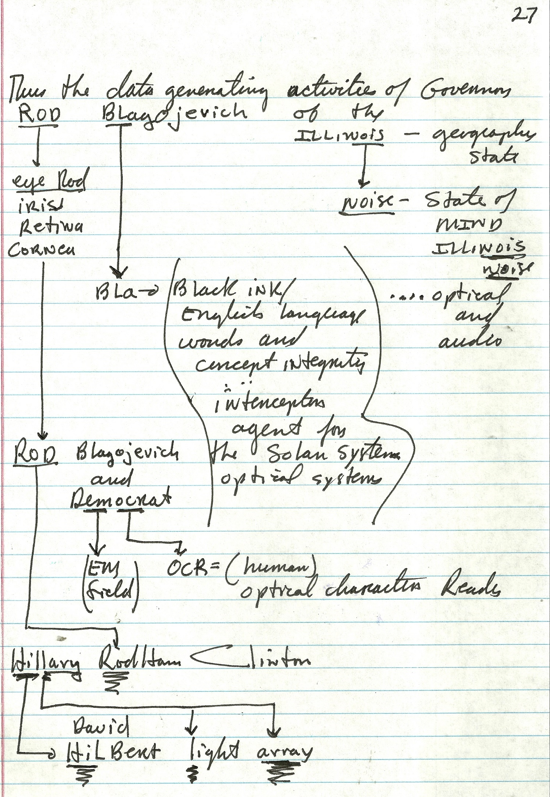 27
Thus the data generating activities of Governor
ROD Blagojevich of the
ILLINOIS – geography
state
eye Rod
iris
Retina
CORNEA
NOISE – State of
MIND
ILLINOIS
NOISE
.... optical
and
audio
BLa→ Black ink/
English language
words and
concept integrity
interceptor
agent for
the Solar System
optical systems
ROD Blagojevich
and
Democrat
(EM
field)
OCR = (human)
optical character Reader
Hillary RodHam Clinton
David
HilBert light array